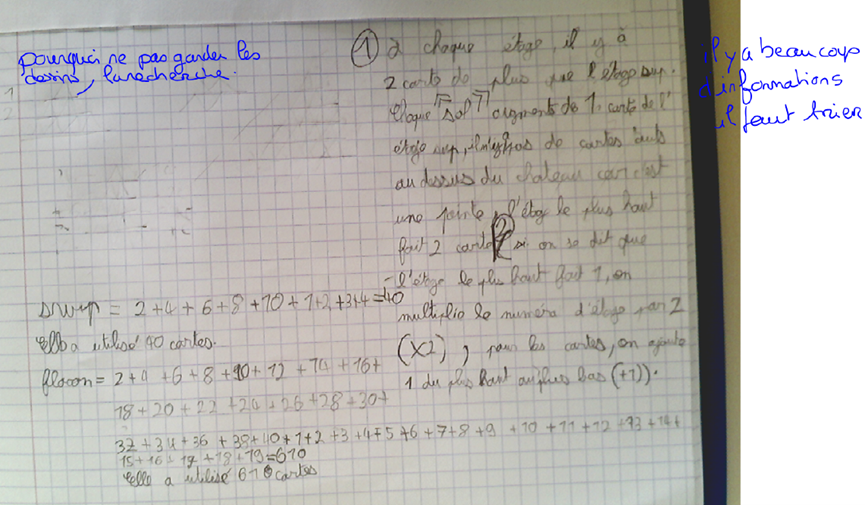 pourquoi ne pas garder les
dessins, la recherche.
① à chaque étage, il y à
2 carte de plus que l'étage sup.
Chaque "sol" augmente de 1 carte de l'
étage sup, il n'y a pas de cartes
au dessus du chateau car c'est
une pointe, l'étage le plus haut
fait 2 cartes
② si on se dit que
l'étage le plus haut fait 1, on
multiplie le numéro d'étage par 2
(x2), pour les cartes, on ajoute
1 du plus haut au plus bas (+1)).
il y a beaucoup
d'informations
il faut trier
= 2+4+6+8+10+1+2+3+4=40
Elle a utilisé 40 cartes.
flocon = 2+4+6+8+10+12+14+16+
18+20+22+24+26+28+30+
32+34+36+38+40+1+2+3+4+5+6+7+8+9+10+11+12+13+14+
15+16+17+18+19=610
Elle a utilisé 610 cartes